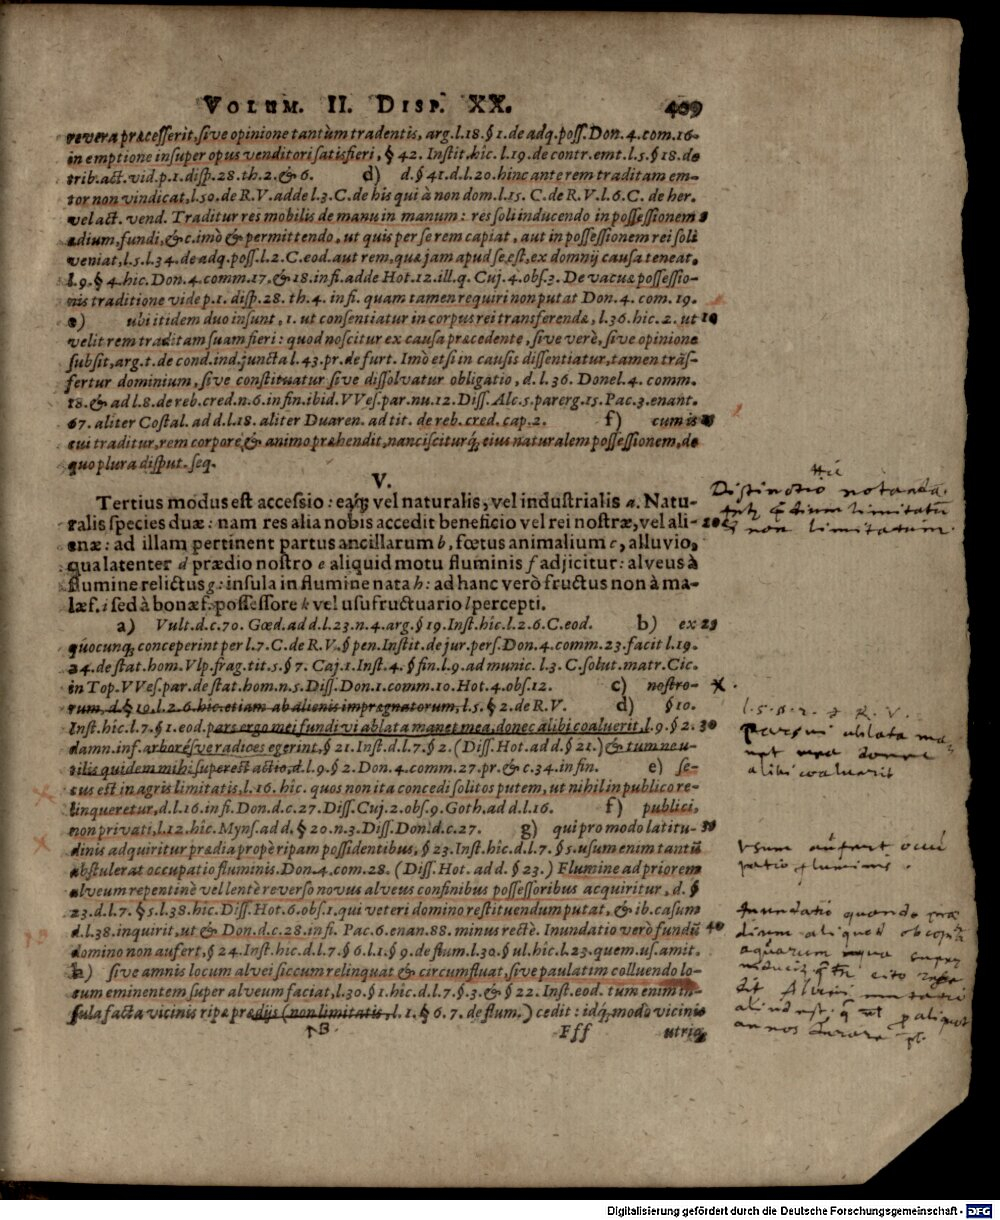 VOLUM. II. DISP. XX. 409
revera præcesserit, sive opinione tantùm tradentis, arg. l. 18. § 1. de adq. poss. Don. 4. com. 16.
in emptione insuper opus venditori satisfieri, § 42. Instit. hîc. l. 19. de contr. emt. l. 5. § 18. de
trib. act. vid. p. 1. disp. 28. th. 2. & 6. d) d. § 41. d. l. 20. hinc ante rem traditam em-
tor non vindicat, l. 50. de R. V. adde l. 3. C. de his qui à non dom. l. 15. C. de R. V. l. 6. C. de her.
vel act. vend. Traditur res mobilis de manu in manum: res soli inducendo in possessionem
ædium, fundi, &c. imò & permittendo, ut quis per se rem capiat, aut in possessionem rei soli
veniat, l. 5. l. 34. de adq. poss. l. 2. C. eod. aut rem, quæ jam apud se est, ex domnij causa teneat.
l. 9. § 4. hic. Don. 4. comm. 17. & 18. infi. adde Hot. 12. ill. q. Cuj. 4. obs. 3. De vacuæ possessio-
nis traditione vide p. 1. disp. 28. th. 4. infi. quam tamen requiri non putat Don. 4. com. 19.
e) ubi itidem duo insunt, 1. ut consentiatur in corpus rei transferendæ, l. 36. hic. 2. ut 10
velit rem traditam suam fieri: quod noscitur ex causa præcedente, sive verè, sive opinione
subsit, arg. t. de cond. ind. juncta l. 43. pr. de furt. Imò etsi in causis dissentiatur, tamen trãs-
fertur dominium, sive constituatur sive dissolvatur obligatio, d. l. 36. Donel. 4. comm.
18. & ad l. 8. de reb. cred. n. 6. in fin. ibid. VVes. par. nu. 12. Diss. Alc. 5. parerg. 15. Pac. 3. enant.
67. aliter Costal. ad d. l. 18. aliter Duaren. ad tit. de reb. cred. cap. 2. f) cum is
cui traditur, rem corpore & animo prehendit, nancisciturq́; eius naturalem possessionem, de
quo plura disput. seq.
V.
Tertius modus est accessio: eaq́; vel naturalis, vel industrialis a. Natu-
ralis species duæ: nam res alia nobis accedit beneficio vel rei nostræ, vel ali- 20
enæ: ad illam pertinent partus ancillarum b, fœtus animalium c, alluvio,
qua latenter d prædio nostro e aliquid motu fluminis f adjicitur: alveus à
flumine relictus g: insula in flumine nata h: ad hanc verò fructus non à ma-
læ f. i sed à bonæ f. possessore k vel usufructuario l percepti.
a) Vult. d. c. 70. Gœd. ad d. l. 23. n. 4. arg. § 19. Inst. hîc. l. 2. 6. C. eod. b) ex 25
quocunq; conceperint per l. 7. C. de R. V. § pen. Instit. de jur. pers. Don. 4. comm. 23. facit l. 19.
24. de stat. hom. Vlp. frag. tit. 5. § 7. Caj. 1. Inst. 4. § fin. l. 9. ad munic. l. 3. C. solut. matr. Cic.
in Top. VVes. par. de stat. hom. n. 5. Diss. Don. 1. comm. 10. Hot. 4. obs. 12. c) nostro-
rum, d. § 19. l. 2. 6. hic. etiam ab alienis impregnatorum, l. 5. § 2. de R. V. d) § 10.
Inst. hîc. l. 7. § 1. eod. pars ergo mei fundi vi ablata manet mea, donec alibi coaluerit, l. 9. § 2. 30
damn. inf. arborésve radices egerint, § 21. Inst. d. l. 7. § 2. (Diss. Hot. ad d. § 21.) & tum ne u-
tilis quidem mihi superest actio, d. l. 9. § 2. Don. 4. comm. 27. pr. & c. 34. in fin. e) se-
cus est in agris limitatis, l. 16. hic. quos non ita concedi solitos putem, ut nihil in publico re-
linqueretur, d. l. 16. infi. Don. d. c. 27. Diss. Cuj. 2. obs. 9. Goth. ad d. l. 16. f) publici,
non privati, l. 12. hîc. Myns. ad d. § 20. n. 3. Diss. Don. d. c. 27. g) qui pro modo latitu- 35
dinis adquiritur prædia propè ripam possidentibus, § 23. Inst. hîc. d. l. 7. § 5. usum enim tantũ
abstulerat occupatio fluminis. Don. 4. com. 28. (Diss. Hot. ad d. § 23.) Flumine ad priorem
alveum repentinè vel lentè reverso novus alveus confinibus possessoribus acquiritur, d. §
23. d. l. 7. § 5. l. 38. hic. Diss. Hot. 6. obs. 1. qui veteri domino restituendum putat, & ib. casum
d. l. 38. inquirit, ut & Don. d. c. 28. infi. Pac. 6. enan. 88. minus rectè. Inundatio verò fundũ 40
domino non aufert, § 24. Inst. hic. d. l. 7. § 6. l. 1. § 9. de flum. l. 30. § ul. hîc l. 23. quem. us. amit.
h) sive amnis locum alvei siccum relinquat & circumfluat, sive paulatim colluendo lo-
cum eminentem super alveum faciat, l. 30. § 1. hic. d. l. 7. §. 3. & § 22. Inst. eod. tum enim in-
sula facta vicinis ripæ prædijs (non limitatis, l. 1. § 6. 7. de flum.) cedit: idq́; modò vicinis
Fff utriq;
Distinctio notanda
limitatũ
& non limitatum
l. 5. § 2. d R. V.
pars vi ablata ma-
net mea donec
alibi coaluerit
Usum aufert occu
patio fluminis.
Inundatio quando præ
dium aliquod
annos
Digitalisierung gefördert durch die Deutsche Forschungsgemeinschaft - DFG